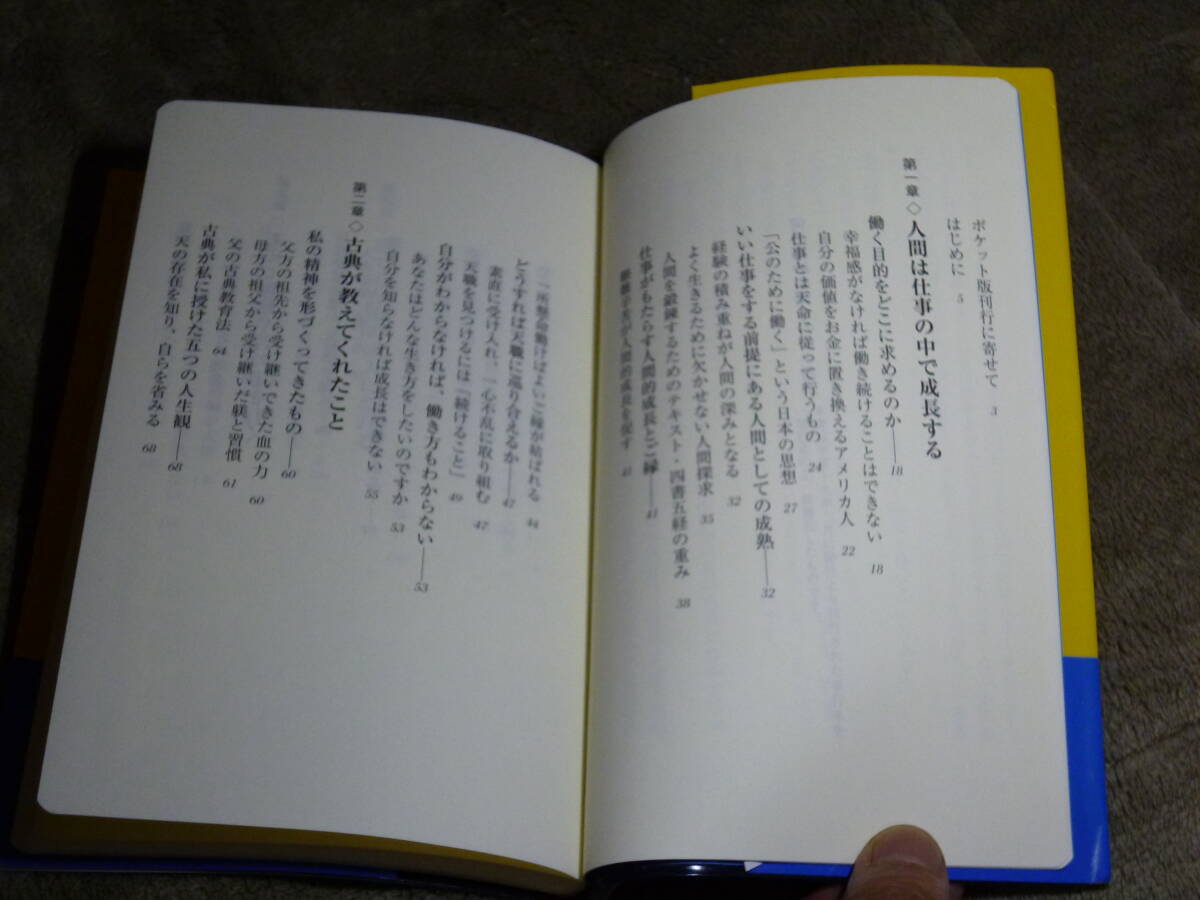 ポケット版刊行に寄せて 3
はじめに 5
第一章◇人間は仕事の中で成長する
働く目的をどこに求めるのか――18
幸福感がなければ働き続けることはできない 18
自分の価値をお金に置き換えるアメリカ人 22
仕事とは天命に従って行うもの 24
「公のために働く」という日本の思想 27
いい仕事をする前提にある人間としての成熟――32
経験の積み重ねが人間の深みとなる 32
よく生きるために欠かせない人間探求 35
人間を鍛錬するためのテキスト・四書五経の重み 38
仕事がもたらす人間的成長とご縁――41
が人間的成長を促す 41
一所懸命働けばよいご縁が結ばれる 44
どうすれば天職に巡り合えるか――47
素直に受け入れ、一心不乱に取り組む 47
天職を見つけるには「続けること」 49
自分がわからなければ、働き方もわからない――53
あなたはどんな生き方をしたいのですか 53
自分を知らなければ成長はできない 55
第二章◇古典が教えてくれたこと
私の精神を形づくってきたもの――60
父方の祖先から受け継いできた血の力 60
母方の祖父から受け継いだ躾と習慣 61
父の古典教育法 64
古典が私に授けた五つの人生観――68
天の存在を知り、自らを省みる 68